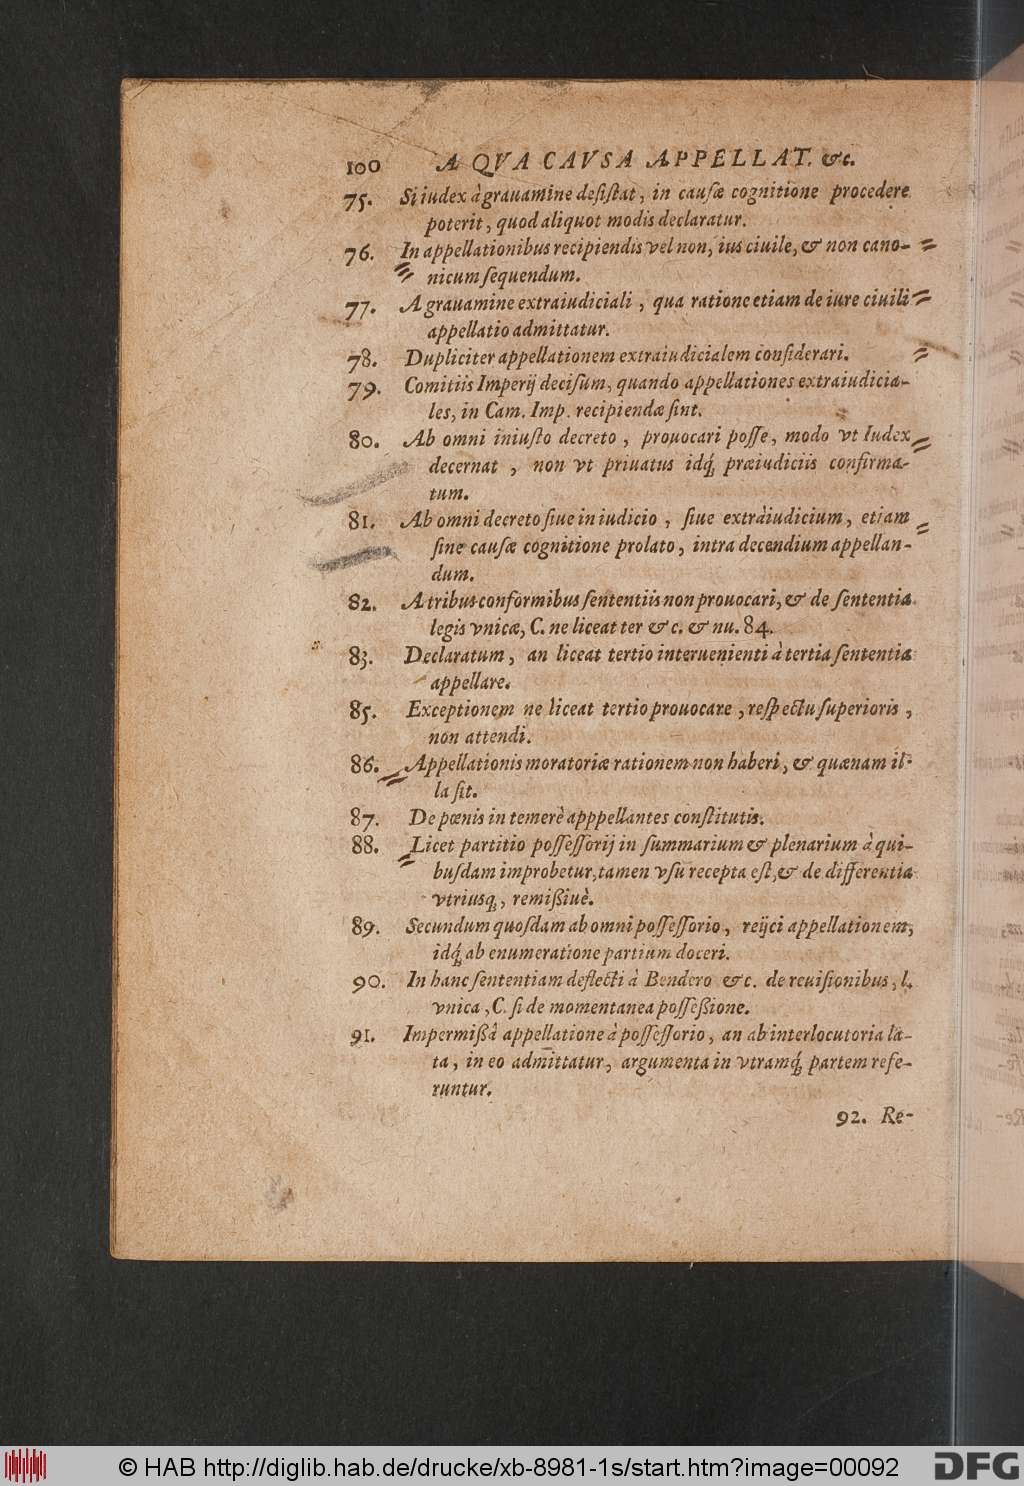 100 A QVA CAVSA APPELLAT. &c.
75. Si iudex à grauamine desistat, in causæ cognitione procedere
poterit, quod aliquot modis declaratur.
76. In appellationibus recipiendis vel non, ius ciuile, & non cano-
nicum sequendum.
77. A grauamine extraiudiciali, qua ratione etiam de iure ciuili
appellatio admittatur.
78. Dupliciter appellationem extraiudicialem considerari.
79. Comitiis Imperij decisum, quando appellationes extraiudicia-
les, in Cam. Imp. recipiendæ sint.
80. Ab omni iniusto decreto, prouocari posse, modo vt Iudex
decernat, non vt priuatus idq́; præiudiciis confirma-
tum.
81. Ab omni decreto siue in iudicio, siue extràiudicium, etiam
sine causæ cognitione prolato, intra decendium appellan-
dum.
82. A tribus conformibus sententiis non prouocari, & de sententia
legis vnicæ, C. ne liceat ter &c. & nu. 84.
83. Declaratum, an liceat tertio interuenienti à tertia sententia
appellare.
85. Exceptionem ne liceat tertio prouocare, respectu superioris,
non attendi.
86. Appellationis moratoriæ rationem non haberi, & quænam il-
la sit.
87. De pœnis in temerè apppellantes constitutis.
88. Licet partitio possessorij in summarium & plenarium à qui-
busdam improbetur, tamen vsu recepta est, & de differentia
vtriusq;, remißiuè.
89. Secundum quosdam ab omni possessorio, reijci appellationem,
idq́; ab enumeratione partium doceri.
90. In hanc sententiam deflecti à Bendero &c. de reuisionibus, l.
vnica, C. si de momentanea posseßione.
91. Impermißâ appellatione à possessorio, an ab interlocutoria la-
ta, in eo admittatur, argumenta in vtramq́; partem refe-
runtur.
92. Re-
© HAB http://diglib.hab.de/drucke/xb-8981-1s/start.htm?image=00092
DFG